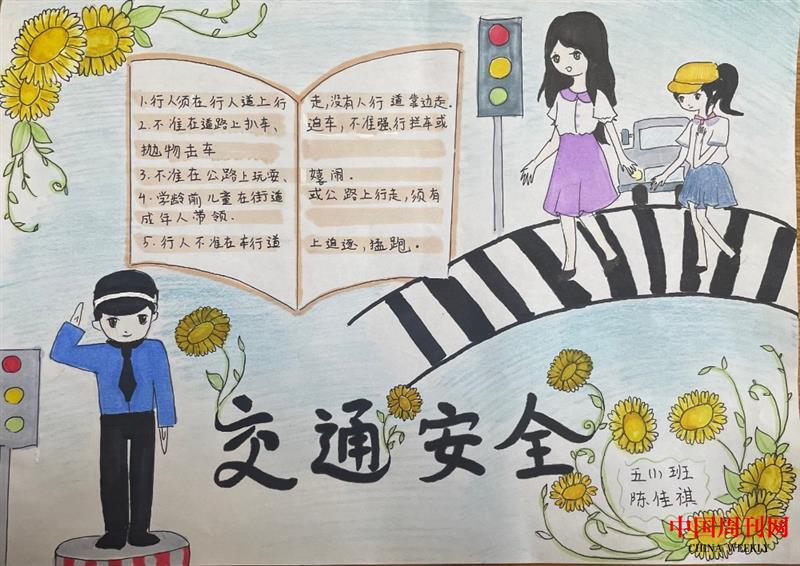 1.行人须在行人道上行走,没有人行道靠边走.
2.不准在道路上扒车、追车,不准强行拦车或
抛物击车
3.不准在公路上玩耍、嬉闹.
4.学龄前儿童在街道或公路上行走,须有
成年人带领.
5.行人不准在车行道上追逐,猛跑。
交通安全
五(1)班
陈佳祺
中国周刊网
CHINA WEEKLY